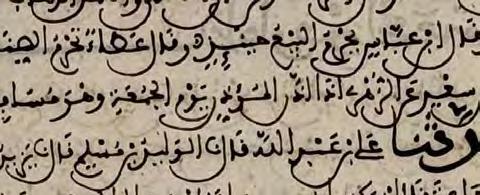 وقال ابن عباس يحرم البيع حينئذ وقال عطاء تحرم
سعد عن الزهري اذا اذن المؤذن يوم الجمعة وهو مسافر
حدثنا علي بن عبد الله قال نا الوليد بن مسلم قال نا يزيد